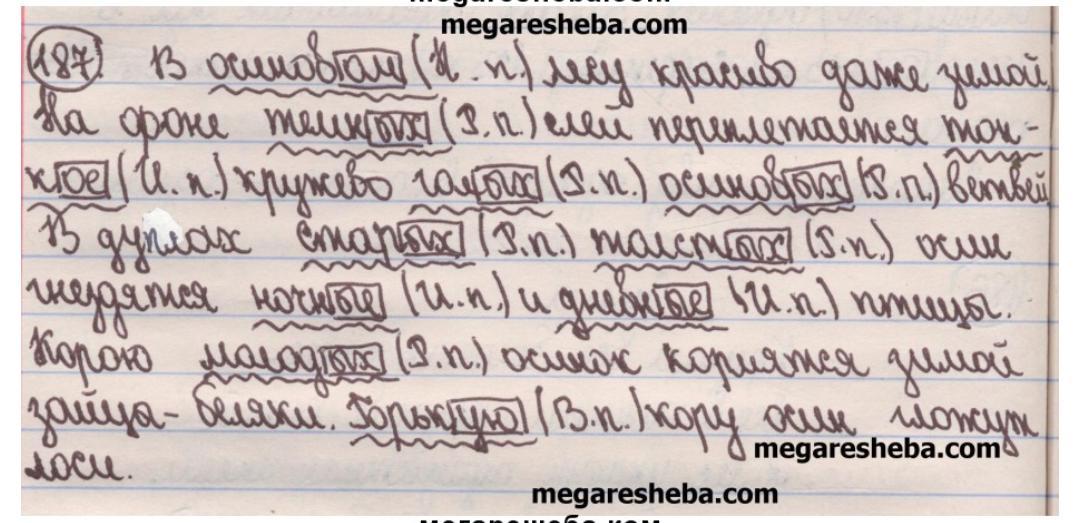 megaresheba.com
megaresheba.com
187. В осиновом (П. п.) лесу красиво даже зимой.
На фоне темных (Р.п.) елей переплетается тон-
кое (И.п.) кружево голых (Р.п.) осиновых (Р.п.) ветвей.
В дуплах старых (Р.п.) толстых (Р.п.) осин
гнездятся ночные (И.п.) и дневные (И.п.) птицы.
Корою молодых (Р.п.) осинок кормятся зимой
зайцы-беляки. Горькую (В.п.) кору осин гложут
megaresheba.com
лоси.
megaresheba.com